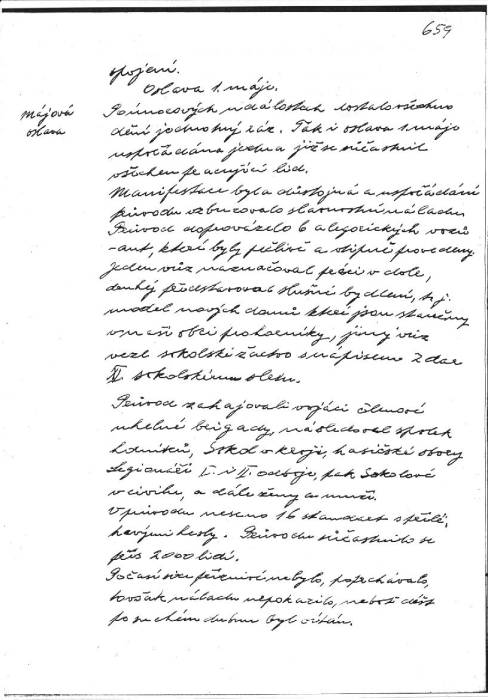 659
spojení.
Oslava 1. máje.
májová
oslava
Po únorových událostech dostalo všechno
dění jednotný ráz. Tak i oslava 1. máje
uspořádána jedna jíž se súčastnil
všechen pracující lid.
Manifestace byla důstojná a uspořádání
průvodu vzbuzovalo slavnostní náladu.
Průvod doprovázelo 6 alegorických vozů
-aut, které byly pečlivě a vtipně provedeny.
Jeden vůz naznačoval práci v dole,
druhý představoval slušné bydlení, t. j.
model nových domů které jsou stavěny
v naší obci pro horníky, jiný vůz
vezl sokolské žactvo s nápisem Zdar
XI. sokolskému sletu.
Průvod zahajovali vojáci členové
uhelné brigády, následoval spolek
horníků, Sokol v kroji, hasičské sbory
Legionáři I. i II. odboje, pak Sokolové
v civilu, a dále ženy a muži.
V průvodu neseno 16 standart s přilé-
havými hesly. Průvodu súčastnilo se
přes 2000 lidí.
Počasí sice příznivé nebylo, poprchávalo,
to však náladu nepokazilo, neboť déšť
po suchém dubnu byl vítán.